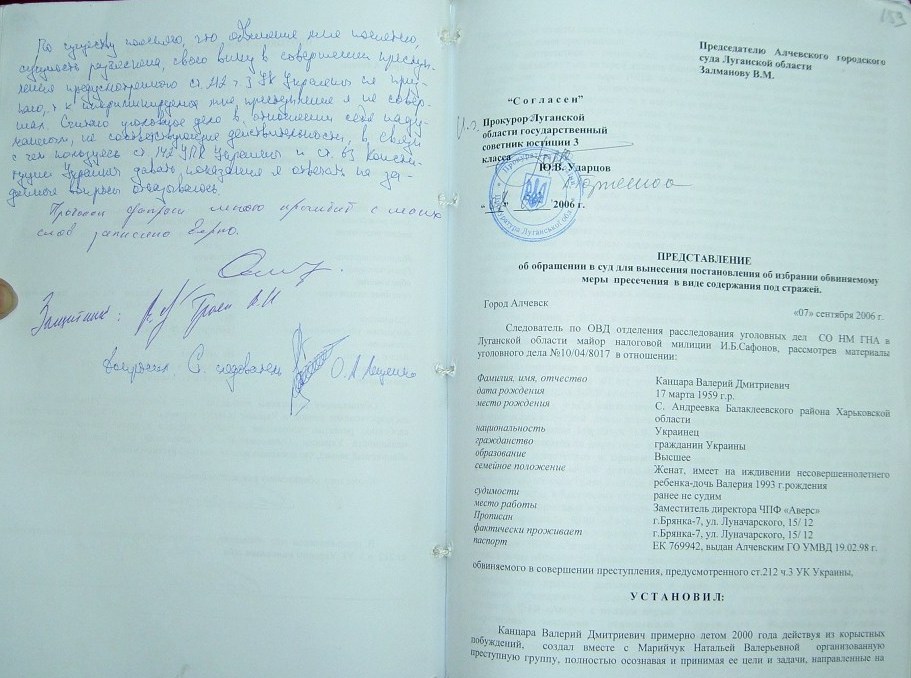 По существу поясняю, что обвинение мне понятно,
сущность разъяснена, свою вину в совершении преступ-
ления предусмотренного ст. 212 ч 3 УК Украины не приз-
наю, т.к. инкриминируемое мне преступление я не совер-
шал. Считаю уголовное дело в отношении себя наду-
манным, не соответствующее действительности, в связи
с чем пользуясь ст. 142 УПК Украины и ст. 63 Консти-
туции Украины давать показания и отвечать на за-
данные вопросы отказываюсь
Протокол допроса мною прочитан с моих
слов записано верно.
Защитник:
допросил: Ст. следователь О.А. Лещенко
153
Председателю Алчевского городского
суда Луганской области
Залманову В.М.
“Согласен”
И.о. Прокурор Луганской
области государственный
советник юстиции 3
класса
Ю.В. Ударцов
2006 г.
ПРЕДСТАВЛЕНИЕ
об обращении в суд для вынесения постановления об избрании обвиняемому
меры пресечения в виде содержания под стражей.
Город Алчевск «07» сентября 2006 г.
Следователь по ОВД отделения расследования уголовных дел СО НМ ГНА в
Луганской области майор налоговой милиции И.Б.Сафонов, рассмотрев материалы
уголовного дела №10/04/8017 в отношении:
Фамилия, имя, отчество Канцара Валерий Дмитриевич
дата рождения 17 марта 1959 г.р.
место рождения С. Андреевка Балаклеевского района Харьковской
области
национальность Украинец
гражданство гражданин Украины
образование Высшее
семейное положение Женат, имеет на иждивении несовершеннолетнего
ребенка-дочь Валерия 1993 г.рождения
судимости ранее не судим
место работы Заместитель директора ЧПФ «Аверс»
Прописан г.Брянка-7, ул. Луначарского, 15/ 12
фактически проживает г.Брянка-7, ул. Луначарского, 15/ 12
паспорт ЕК 769942, выдан Алчевским ГО УМВД 19.02.98 г.
обвиняемого в совершении преступления, предусмотренного ст.212 ч.3 УК Украины,
УСТАНОВИЛ:
Канцара Валерий Дмитриевич примерно летом 2000 года действуя из корыстных
побуждений, создал вместе с Марийчук Натальей Валерьевной организованную
преступную группу, полностью осознавая и принимая ее цели и задачи, направленные на